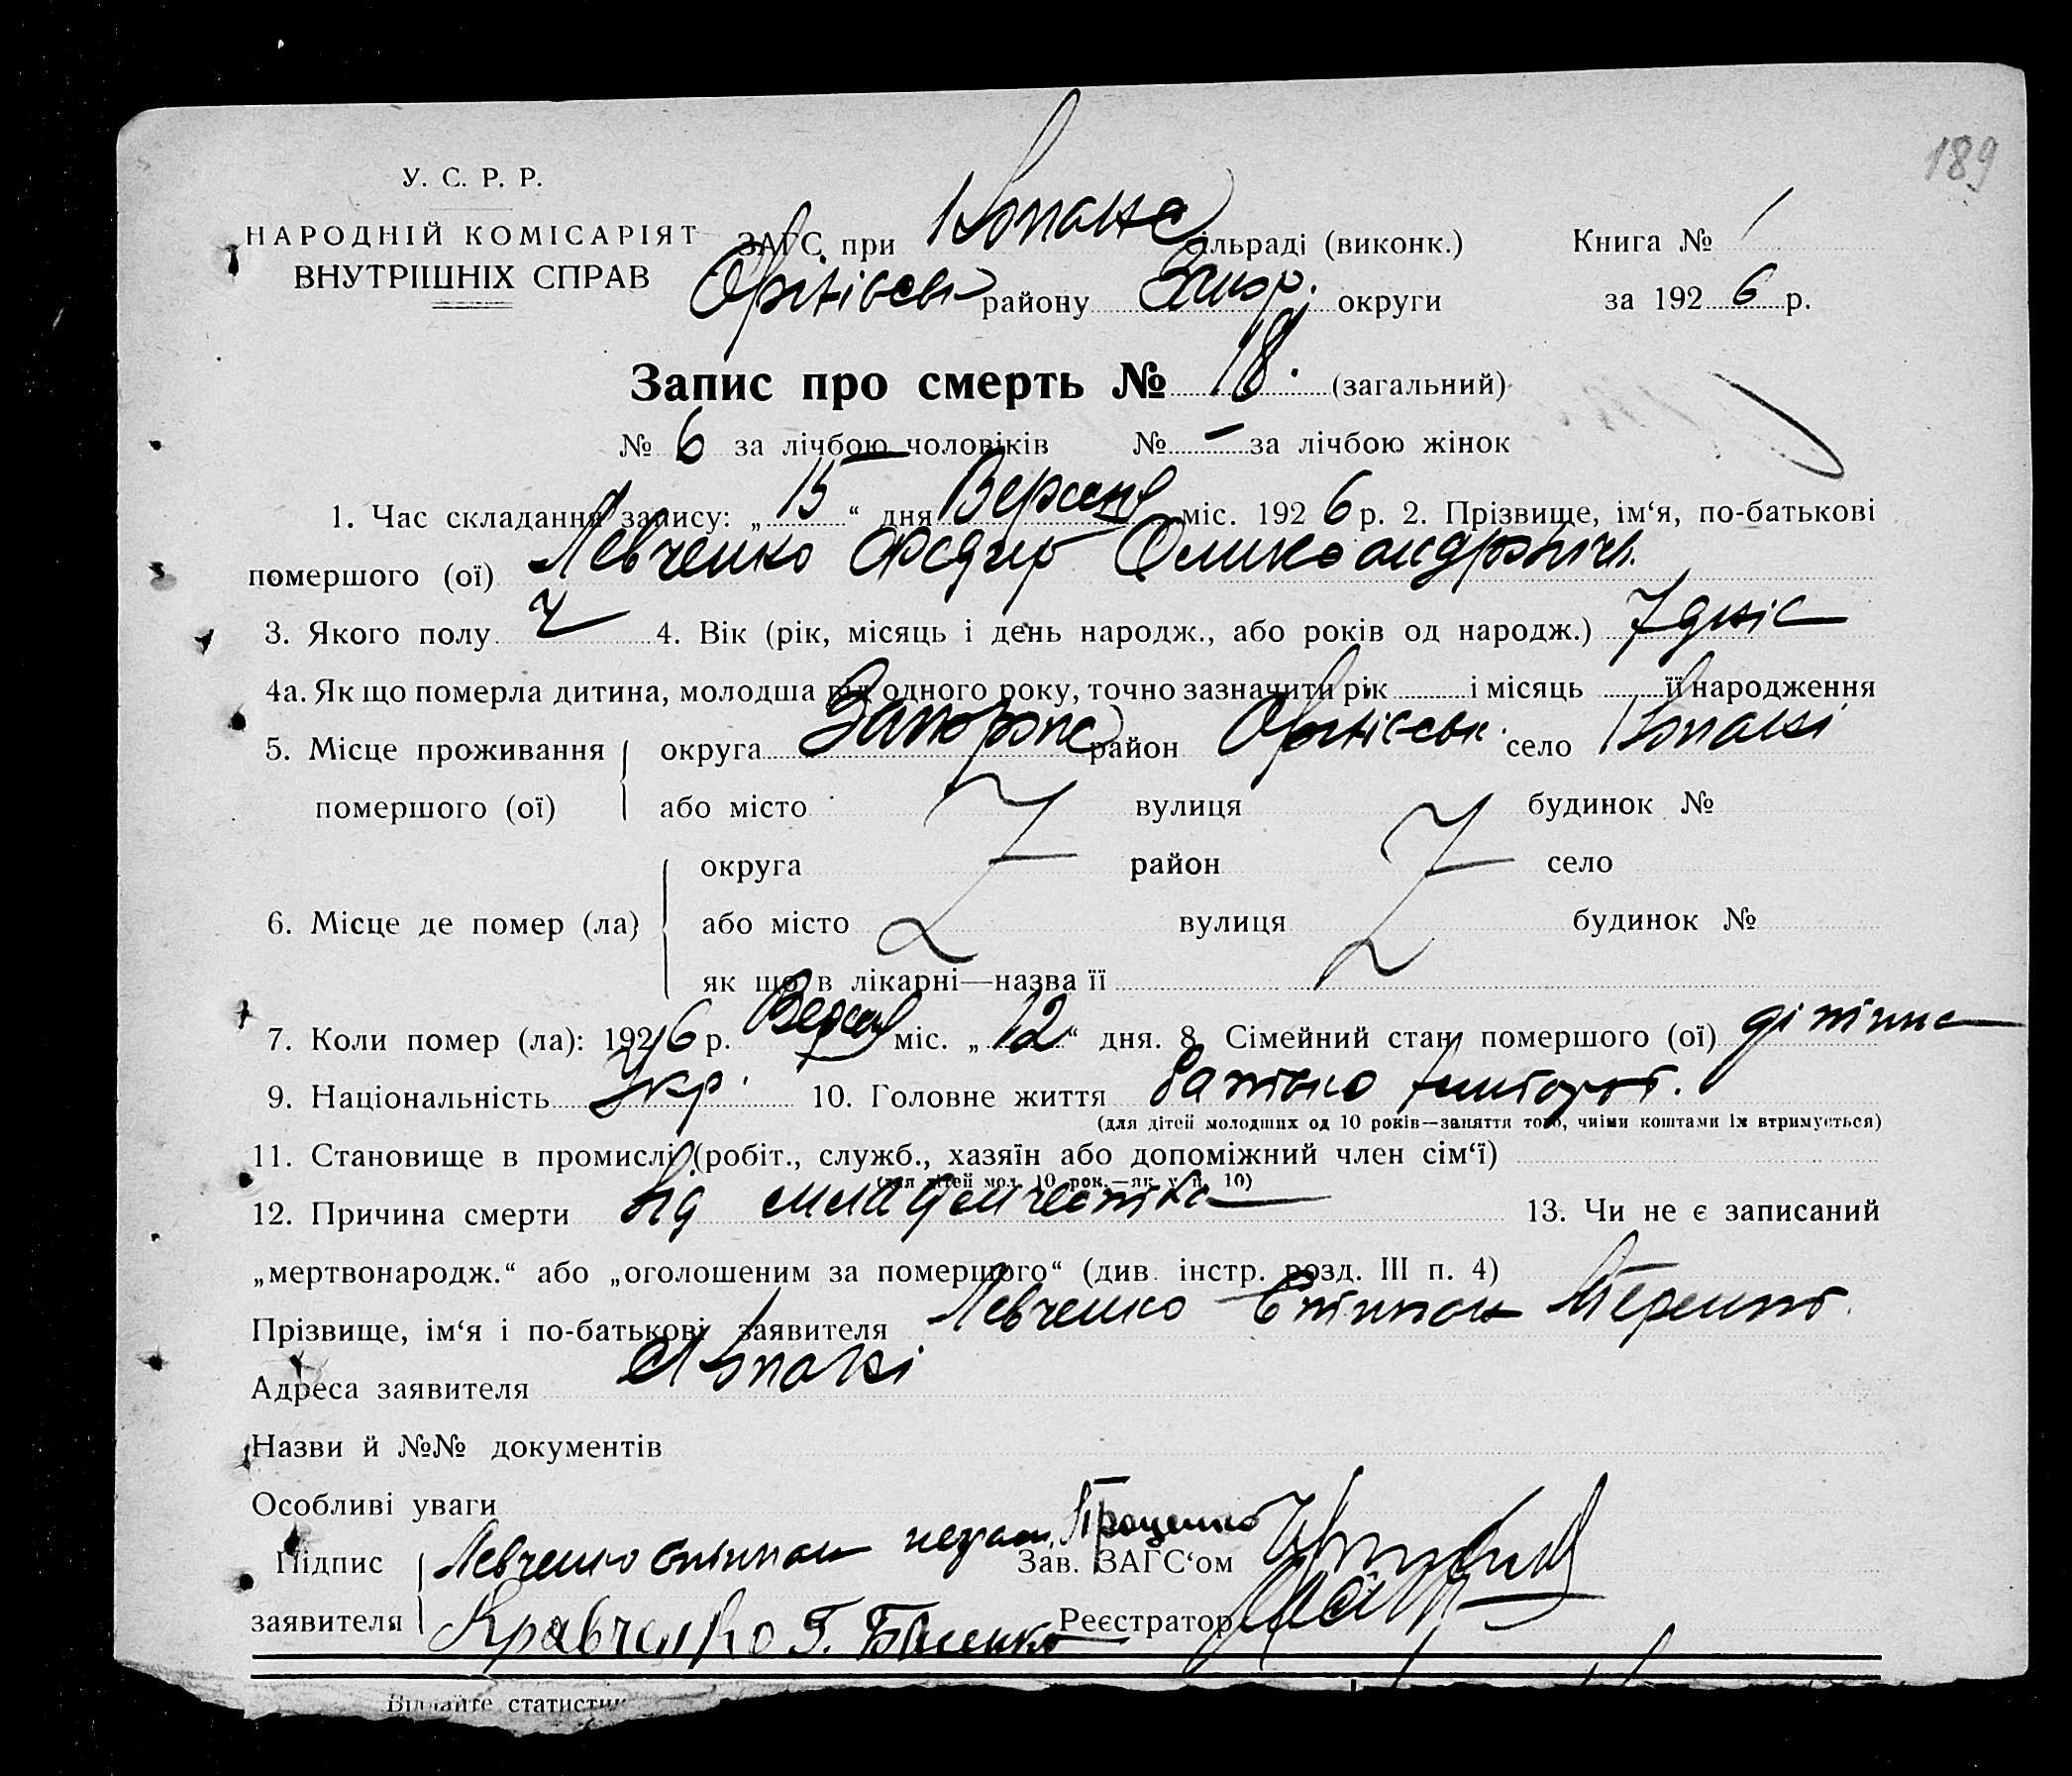 189
У. С. Р. Р.
НАРОДНІЙ КОМІСАРІЯТ
ВНУТРІШНІХ СПРАВ
ЗАГС при Копане сільраді (виконк.) Книга № 1
Оріхівськ району Запор. округи за 1926 р.
Запис про смерть № 18. (загальний)
№ 6 за лічбою чоловіків № — за лічбою жінок
1. Час складання запису: „15“ дня Версня міс. 1926 р. 2. Прізвище, ім‘я, по-батькові
помершого (ої) Левченко Федір
3. Якого полу ч 4. Вік (рік, місяць і день народж., або років од народж.) 7 дніс
4а. Як що померла дитина, молодша від одного року, точно зазначити рік і місяць її народження
5. Місце проживання округа Запорож район Оріхівськ. село Копані
помершого (ої) або місто вулиця будинок №
округа район село
6. Місце де помер (ла) або місто вулиця будинок №
як що в лікарні—назва її
7. Коли помер (ла): 1926 р. Версня міс. „12“ дня. 8. Сімейний стан помершого (ої) дітина
9. Національність Укр. 10. Головне життя батько
(для дітей молодших од 10 років—заняття того, чиїми коштами їх втримується)
11. Становище в промислі (робіт., служб., хазяїн або допоміжний член сім‘ї)
(для дітей мол. 10 рок.—як у п. 10)
12. Причина смерти від младенчества 13. Чи не є записаний
„мертвонародж.“ або „оголошеним за помершого“ (див. інстр. розд. III п. 4)
Прізвище, ім‘я і по-батькові заявителя Левченко Степан
Адреса заявителя Копані
Назви й №№ документів
Особливі уваги
Підпис Левченко Степан неграм. Проценко Зав. ЗАГС‘ом
заявителя Кравченко Г. Реєстратор